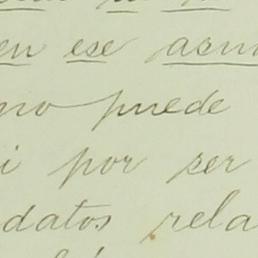 en ese asun
no puede
i por ser
datos rela